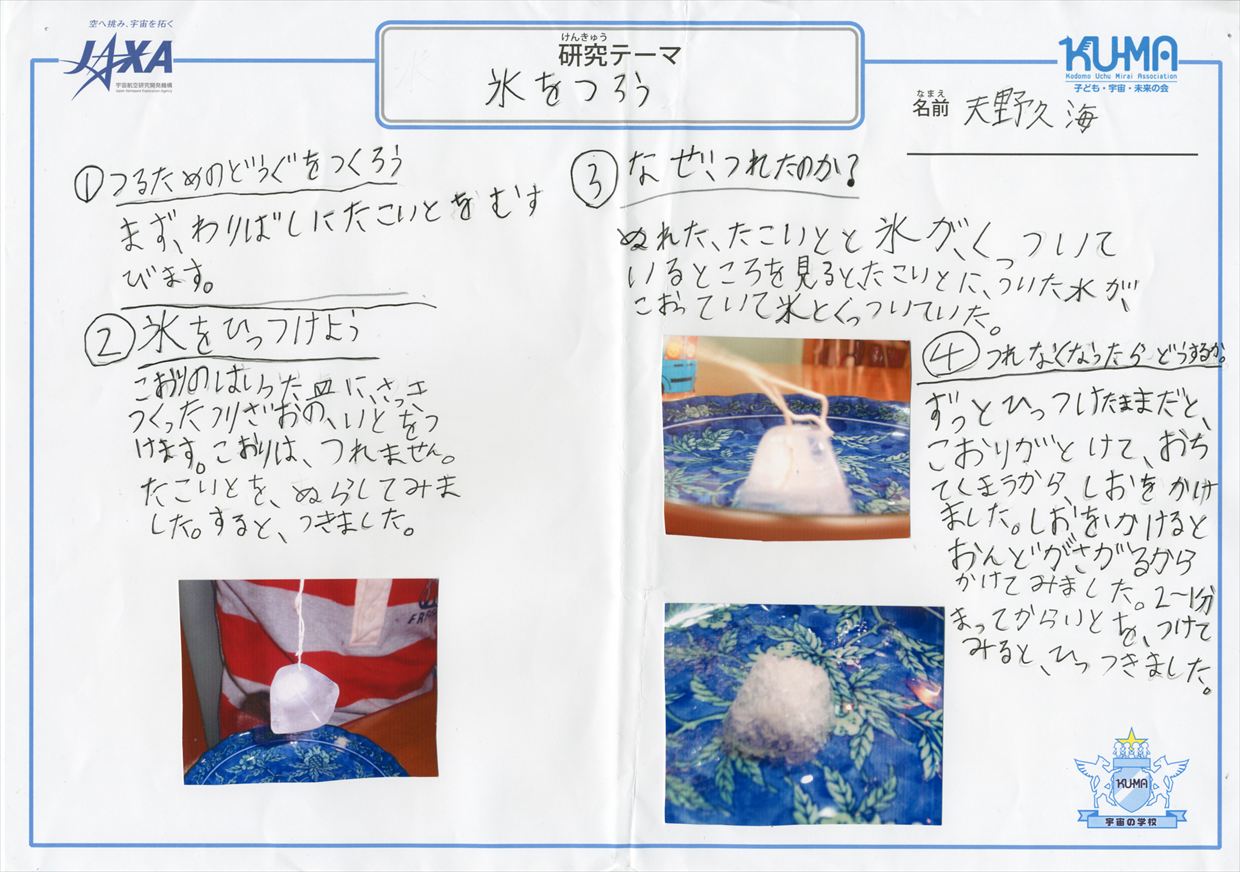 空へ挑み、宇宙を拓く
JAXA
宇宙航空研究開発機構
Japan Aerospace Exploration Agency
けんきゅう
研究テーマ
氷をつろう
KU-MA
Kodomo Uchu Mirai Association
子ども・宇宙・未来の会
なまえ
名前 天野久海
① つるためのどうぐをつくろう
まず、わりばしにたこいとをむす
びます。
② 氷をひっつけよう
こおりのはいった皿に、さっき
つくったつりざおの、いとをつ
けます。こおりは、つれません。
たこいとを、ぬらしてみま
した。すると、つきました。
③ なぜ、つれたのか?
ぬれた、たこいとと氷が、くっついて
いるところを見ると、たこいとに、ついた水が、
こおっていて氷とくっついていた。
④ つれなくなったらどうするか。
ずっとひっつけたままだと、
こおりがとけて、おち
てしまうから、しおをかけ
ました。しおをかけると
おんどがさがるから
かけてみました。2〜1分
まってからいとを、つけて
みると、ひっつきました。
KU-MA
宇宙の学校